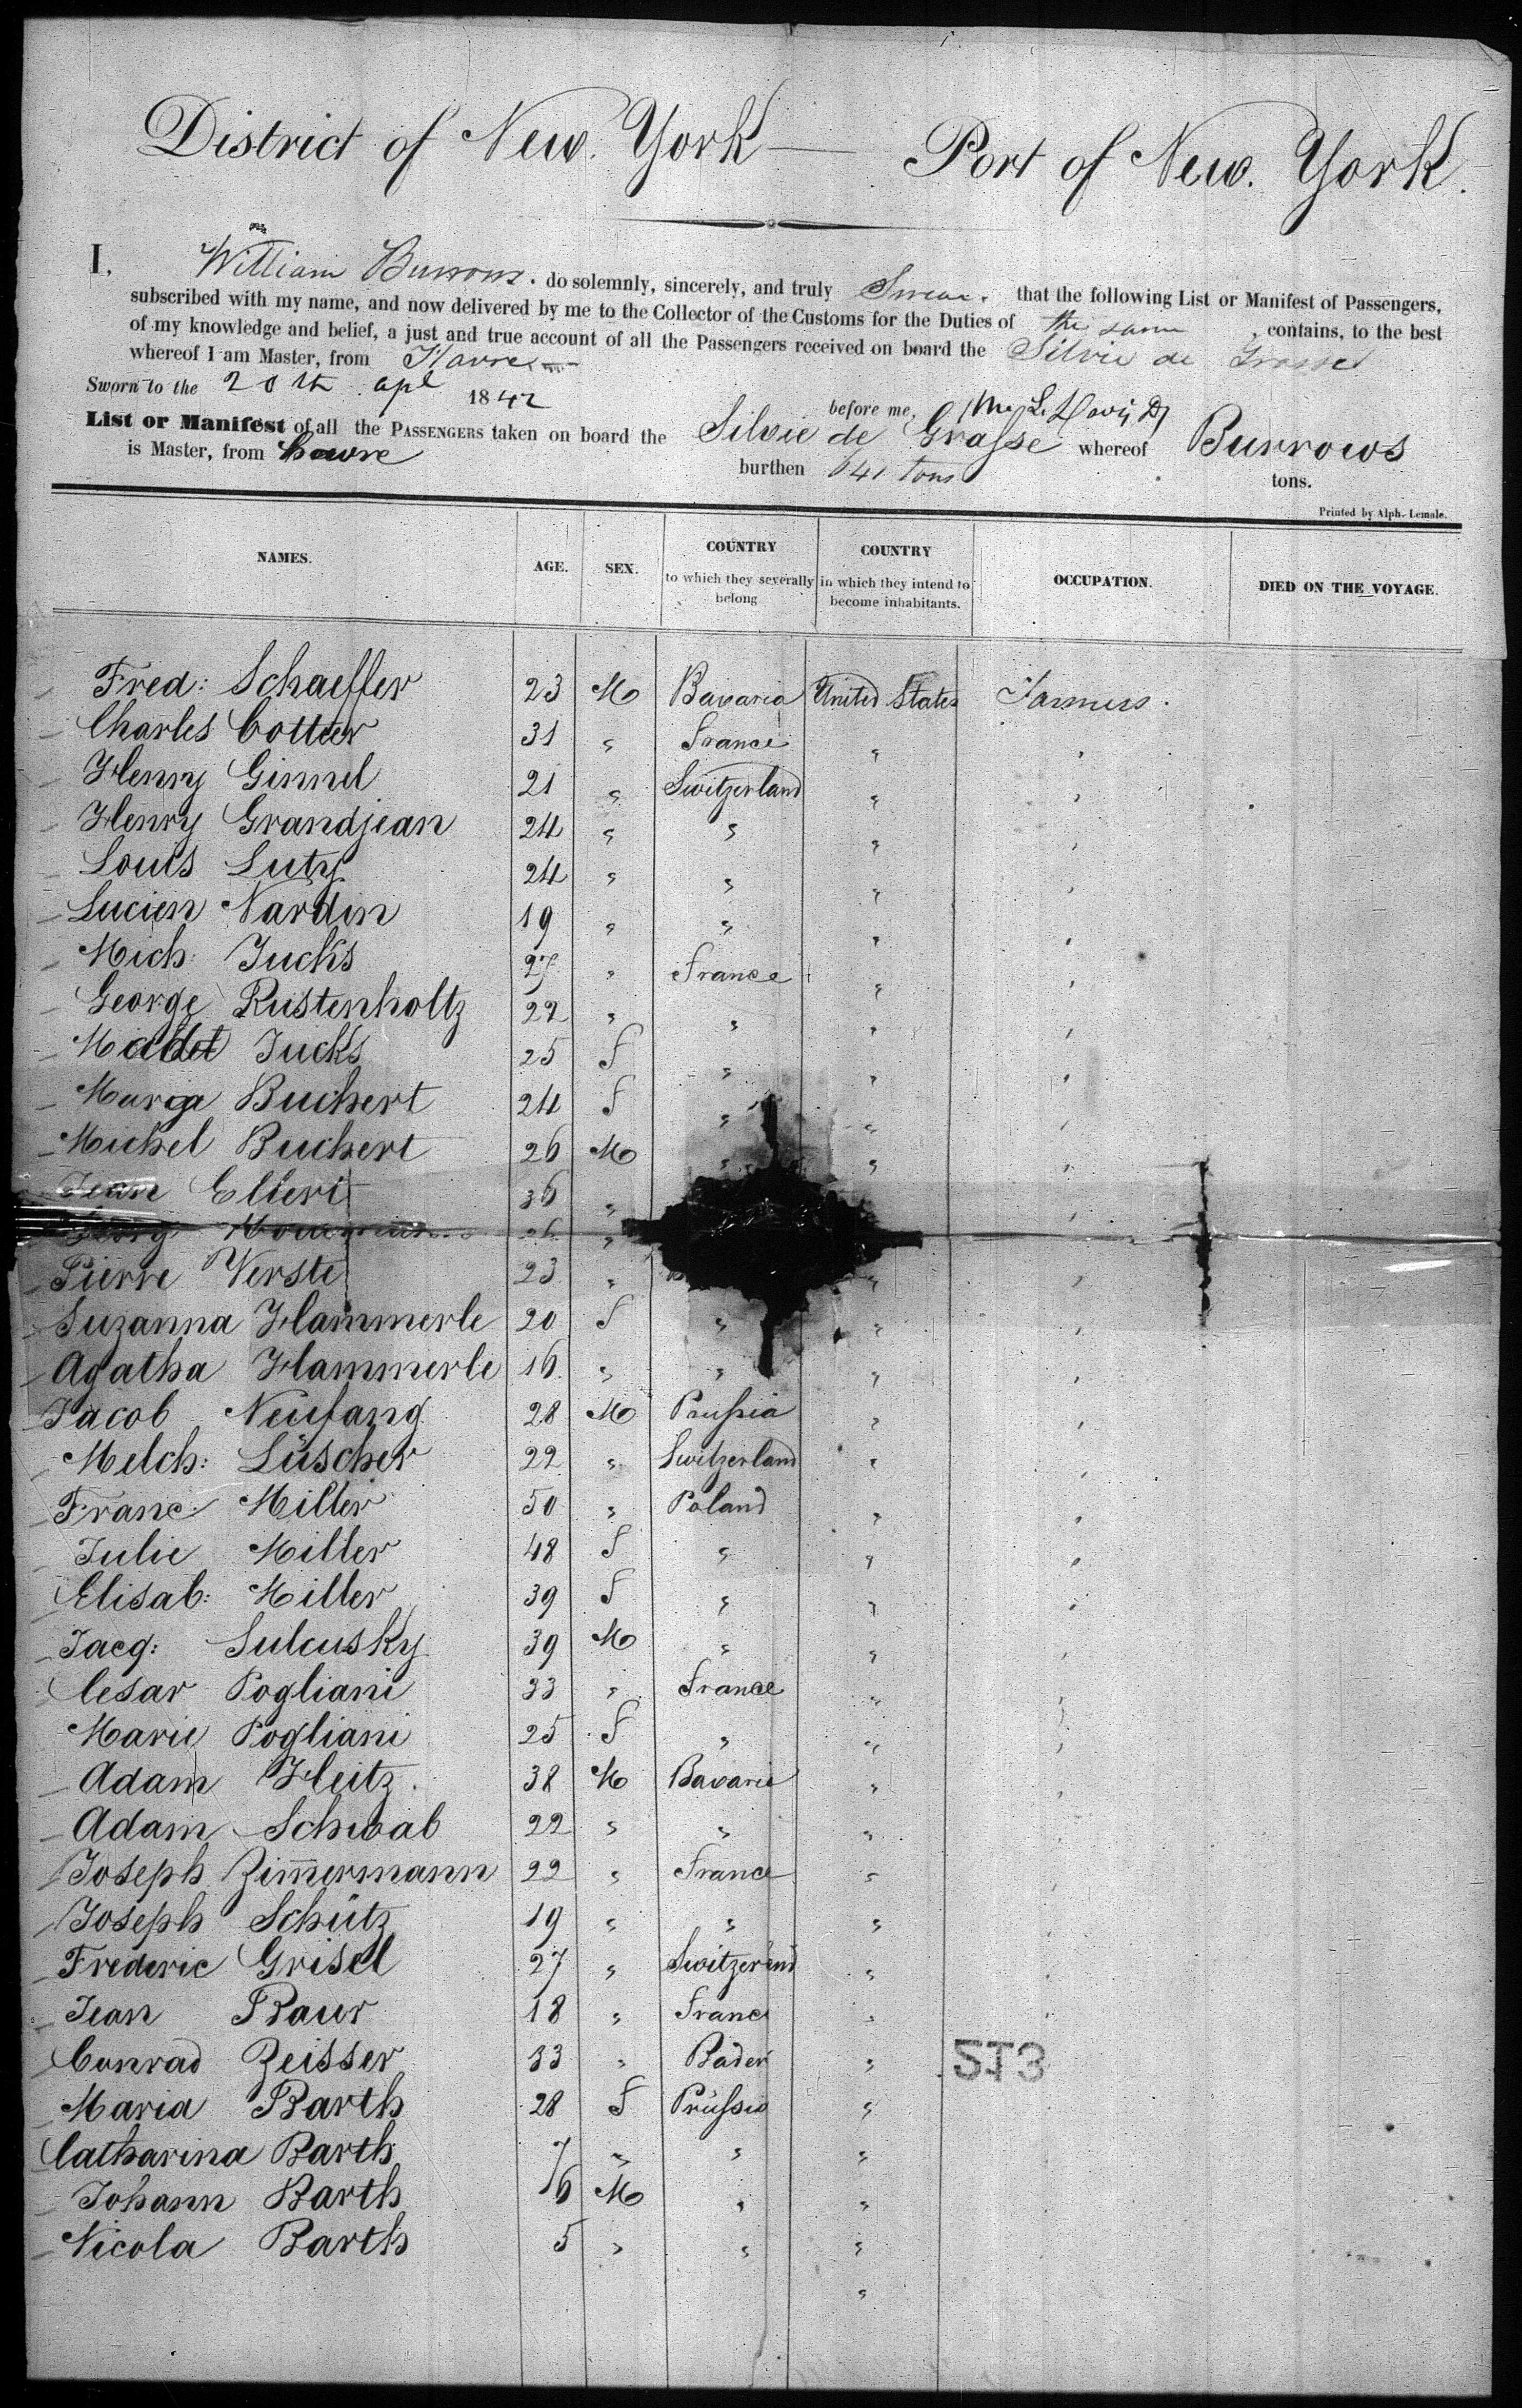 District of New. York — Port of New. York.
I, William Burrows. do solemnly, sincerely, and truly Swear. that the following List or Manifest of Passengers,
subscribed with my name, and now delivered by me to the Collector of the Customs for the Duties of the same, contains, to the best
of my knowledge and belief, a just and true account of all the Passengers received on board the Silvie de Grasse
whereof I am Master, from Havre
Sworn to the 20th apl 1842
before me,
List or Manifest of all the PASSENGERS taken on board the Silvie de Grasse whereof Burrows
is Master, from havre burthen 641 tons tons.
Printed by Alph. Lemale.
NAMES. AGE. SEX. COUNTRY to which they severally belong COUNTRY in which they intend to become inhabitants. OCCUPATION. DIED ON THE VOYAGE.
Fred: Schaeffer 23 M Bavaria United States Farmers.
Charles Cottier 31 " France " "
Henry Ginnel 21 " Switzerland " "
Henry Grandjean 24 " " " "
Louis Luty 24 " " " "
Lucien Nardin 19 " " " "
Mich: Jucks 27 " France " "
George Rustenholtz 22 " " " "
Jucks 25 f " " "
Maria Buchert 24 f " " "
Michel Buchert 26 M " " "
Jean Elteri 36 " "
Georg 26 "
Pierre Verste 23 " " "
Suzanna Hammerle 20 f " " "
Agatha Hammerle 16 " " " "
Jacob Neufang 28 M Prussia " "
Melch: Lüscher 22 " Switzerland " "
Franc: Miller 50 " Poland " "
Julie Miller 48 f " " "
Elisab: Miller 39 f " " "
Jacq: Sulcusky 39 M " " "
Cesar Pogliani 33 " France " "
Marie Pogliani 25 f " " "
Adam Heitz. 38 M Bavaria " "
Adam Schwab 22 " " " "
Joseph Zim̅ermann 22 " France " "
Joseph Schütz 19 " " " "
Frederic Grisel 27 " Switzerland " "
Jean Baur 18 " France " "
Conrad Zeisser 33 " Baden "
213
Maria Barth 28 f Prüssia "
Catharina Barth 7 " " "
Johann Barth 6 M " "
Nicola Barth 5 " " "
"